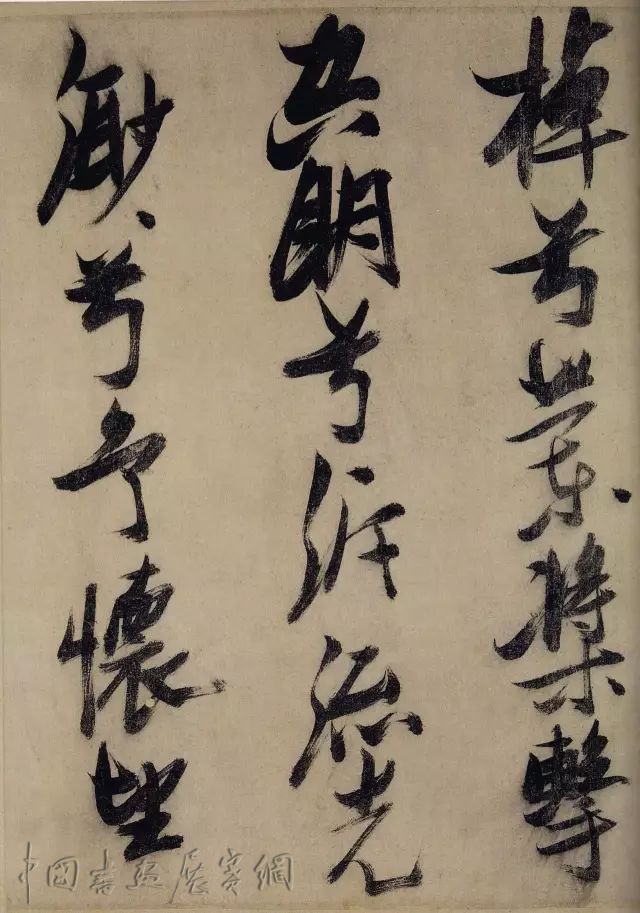 棹兮蘭槳擊
空明兮泝流光
渺、兮予懷望
中国書画展賽網